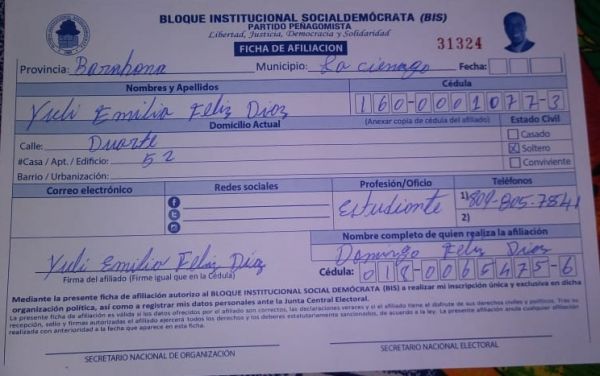 BLOQUE INSTITUCIONAL SOCIALDEMÓCRATA (BIS)
PARTIDO PEÑAGOMISTA
Libertad, Justicia, Democracia y Solidaridad
FICHA DE AFILIACION
31324
Provincia: Barahona Municipio: La cienaga Fecha:
Nombres y Apellidos Cédula
Yuli Emilio Feliz Dioz 160-0001077-3
Domicilio Actual (Anexar copia de cédula del afiliado) Estado Civil
Calle: Duarte Casado
#Casa / Apt. / Edificio: 52 Soltero
Barrio / Urbanización: Conviviente
Correo electrónico Redes sociales Profesión/Oficio Teléfonos
Estudionte 1) 809-805-7841
2)
Nombre completo de quien realiza la afiliación
Yuli Emilio Feliz Dioz Domingo Feliz Dios
Firma del afiliado (Firme igual que en la Cédula) Cédula: 018-0065475-6
Mediante la presente ficha de afiliación autorizo al BLOQUE INSTITUCIONAL SOCIAL DEMÓCRATA (BIS) a realizar mi inscripción única y exclusiva en dicha
organización política, así como a registrar mis datos personales ante la Junta Central Electoral.
La presente ficha de afiliación es válida si los datos ofrecidos por el afiliado son correctos, las declaraciones veraces y si el afiliado tiene el disfrute de sus derechos civiles y políticos. Tras su
recepción, sello y firmas autorizadas el afiliado ejercerá todos los derechos y los deberes estatutariamente sancionados, de acuerdo a la ley. La presente afiliación anula cualquier afiliación
realizada con anterioridad a la fecha que aparece en esta ficha.
SECRETARIO NACIONAL DE ORGANIZACIÓN SECRETARIO NACIONAL ELECTORAL